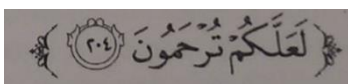 لَعَلَّكُمْ تُرْحَمُونَ ٢٠٤